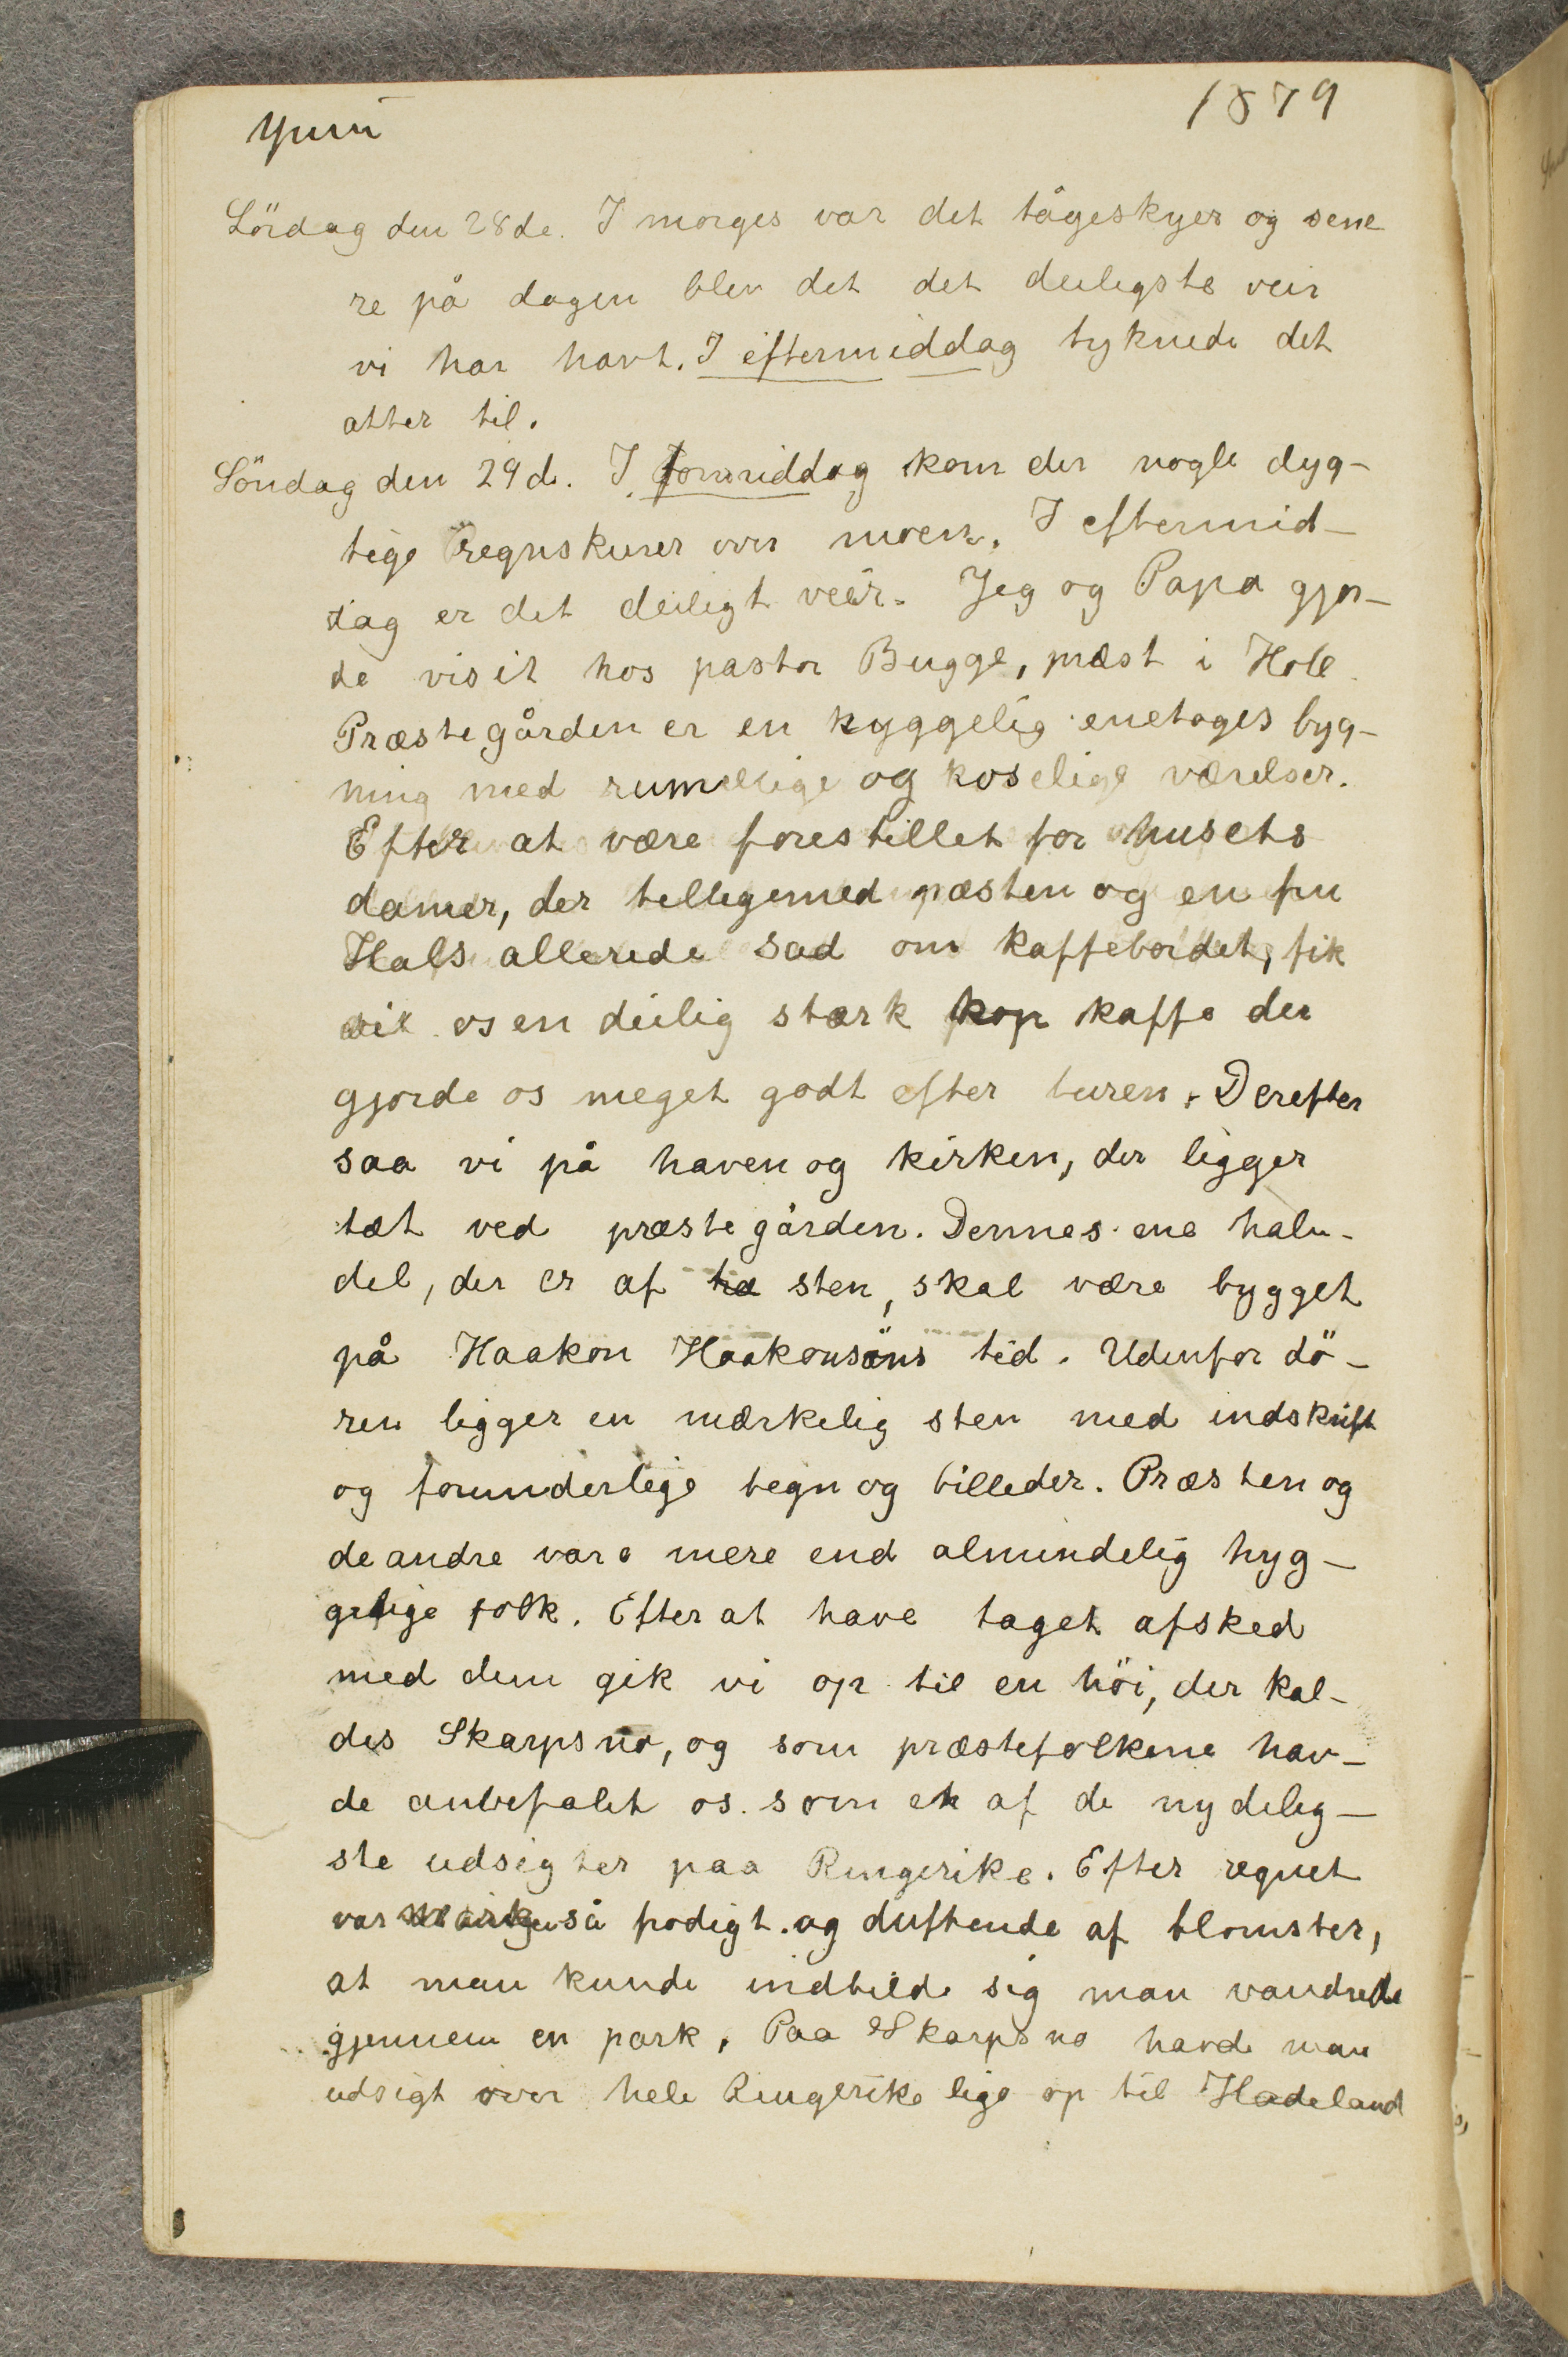 Yuni
1879
Lördag den 28de. I morges var det tågeskyer og sene
re på dagen blev det det deiligste veir
vi har havt. I eftermiddag tyknede det
atter til.
Söndag den 29d. I formiddag kom der nogle dyg-
tige regnskurer over moen. I eftermid-
dag er det deiligt veir. Jeg og Papa gjor-
de visit hos pastor Bugge, præst i Hole.
Præstegården er en hyggelig enetages byg-
ning med rummelige og koselige værelser.
Efter at være forestillet for husets
damer, der tilligemed præsten og en fru
Hals allerede sad om kaffebordet, fik
vi os en deilig stærk kop kaffe der
gjorde os meget godt efter turen. Derefter
saa vi på haven og kirken, der ligger
tæt ved præstegården. Dennes ene halv-
del, der er af sten, skal være bygget
på Haakon Haakonsöns tid. Udenfor dö-
ren ligger en mærkelig sten med indskrift
og forunderlige tegn og billeder. Præsten og
de andre vare mere end almindelig hyg-
gelige folk. Efter at have taget afsked
med dem gik vi op til en höi, der kal-
des Skarpsno, og som præstefolkene hav-
de anbefalet os som en af de nydelig-
ste udsigter paa Ringerike. Efter regnet
var så frodigt og duftende af blomster,
at man kunde indbilde sig man vandrede
gjennem en park. Paa Skarpsno havde man
udsigt over hele Ringerike lige op til Hadeland